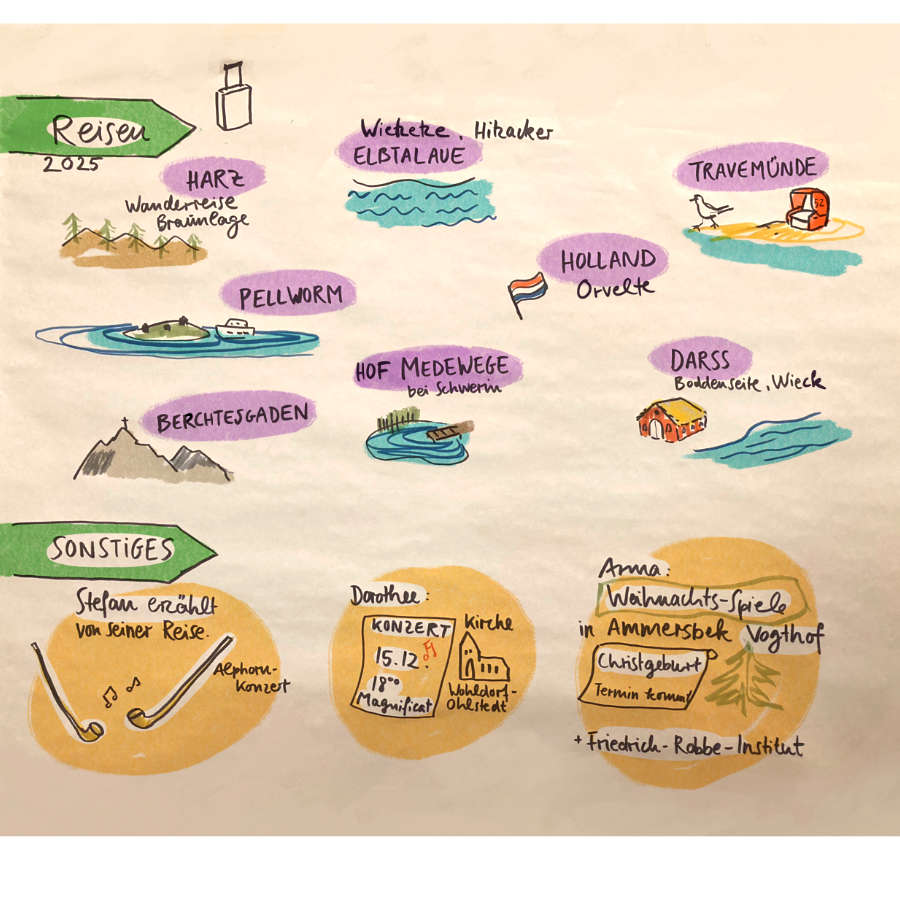 Reisen
2025
HARZ
Wanderreise
Braunlage
Wietzetze, Hitzacker
ELBTALAUE
TRAVEMÜNDE
52
HOLLAND
Orvelte
PELLWORM
HOF MEDEWEGE
bei Schwerin
DARSS
Boddenseite, Wieck
BERCHTESGADEN
SONSTIGES
Stefan erzählt
von seiner Reise.
Alphorn-
Konzert
Dorothee:
KONZERT
15.12.
18°°
Magnificat
Kirche
Wohldorf-
Ohlstedt
Anna:
Weihnachts-Spiele
in Ammersbek Vogthof
Christgeburt
Termin kommt
+ Friedrich-Robbe-Institut